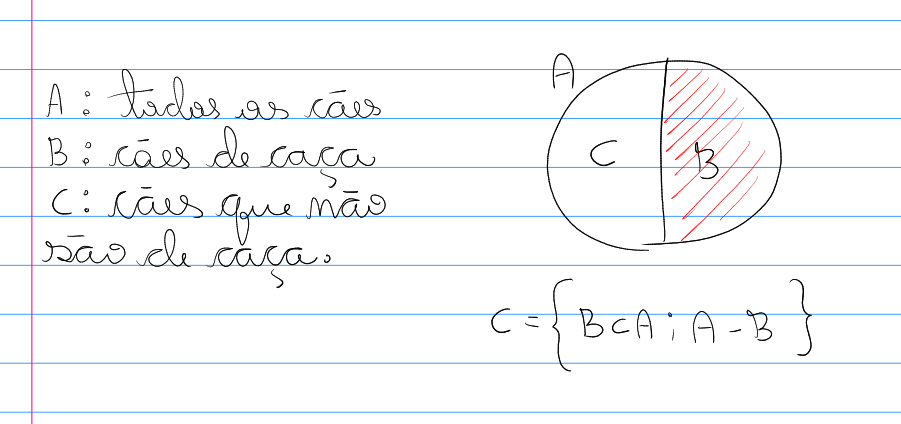 A : todos os cães
B : cães de caça
C : cães que não
são de caça.
A
C
B
C = { B ⊂ A ; A - B }